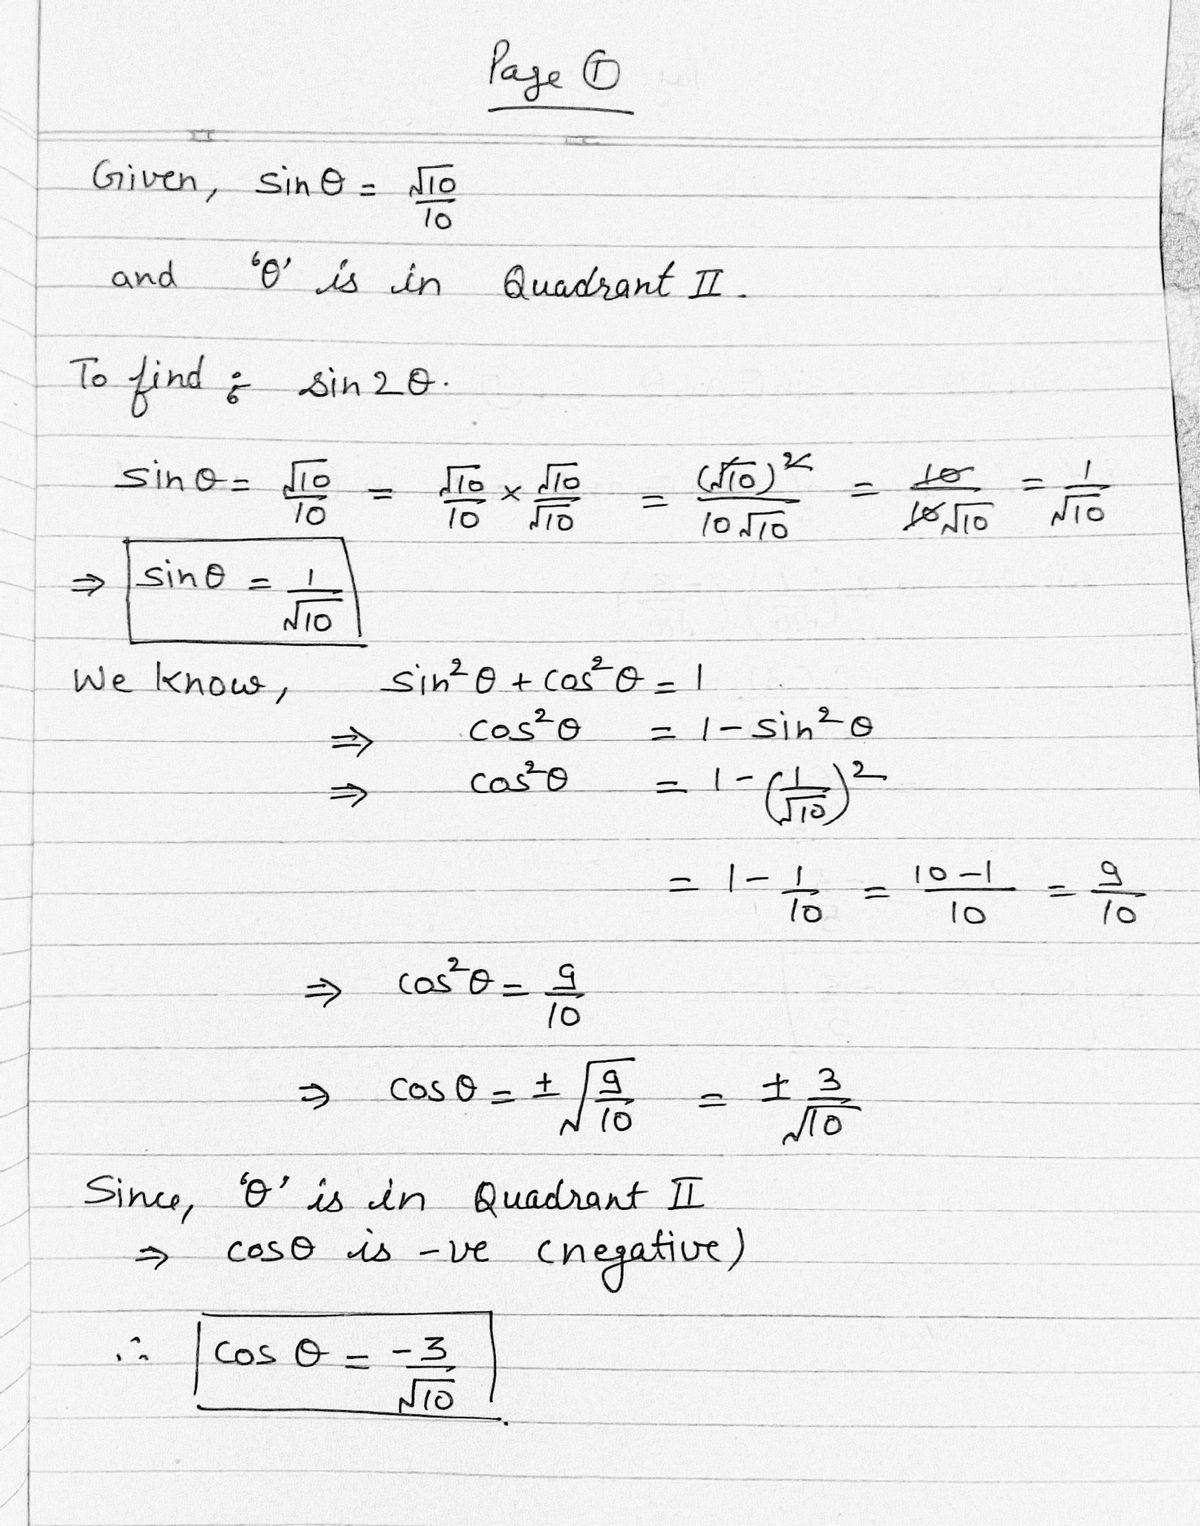 Page ①
Given, sin θ = √10/10
and 'θ' is in Quadrant II.
To find : sin 2θ.
sin θ = √10/10 = √10/10 × √10/√10 = (√10)²/10√10 = 10/10√10 = 1/√10
⇒ sin θ = 1/√10
We know, sin²θ + cos²θ = 1
⇒ cos²θ = 1 - sin²θ
⇒ cos²θ = 1 - (1/√10)²
= 1 - 1/10 = 10-1/10 = 9/10
⇒ cos²θ = 9/10
⇒ cos θ = ± √9/10 = ± 3/√10
Since, 'θ' is in Quadrant II
⇒ cos θ is -ve (negative)
∴ cos θ = -3/√10